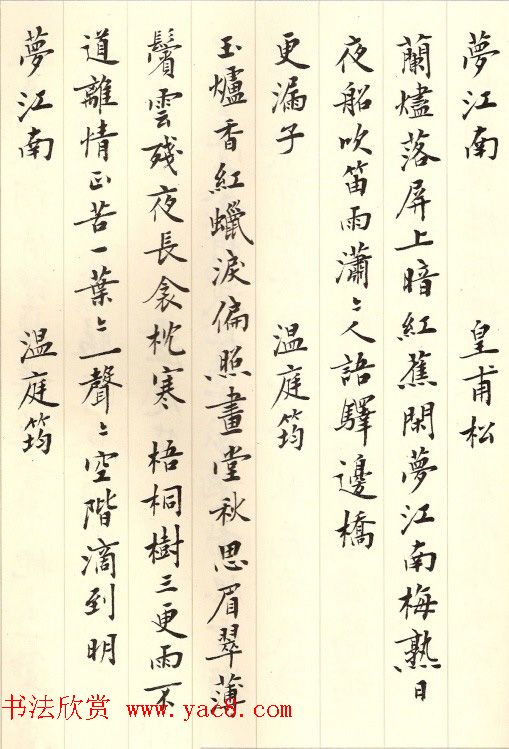 夢江南 皇甫松
蘭燼落屏上暗紅蕉閑夢江南梅熟日
夜船吹笛雨瀟〻人語驛邊橋
更漏子 温庭筠
玉爐香紅蠟淚偏照畫堂秋思眉翠薄
鬢雲殘夜長衾枕寒 梧桐樹三更雨不
道離情正苦一葉〻一聲〻空階滴到明
夢江南 温庭筠
书法欣赏 www.yac8.com